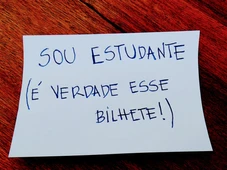 SOU ESTUDANTE
(É VERDADE ESSE
BILHETE!)